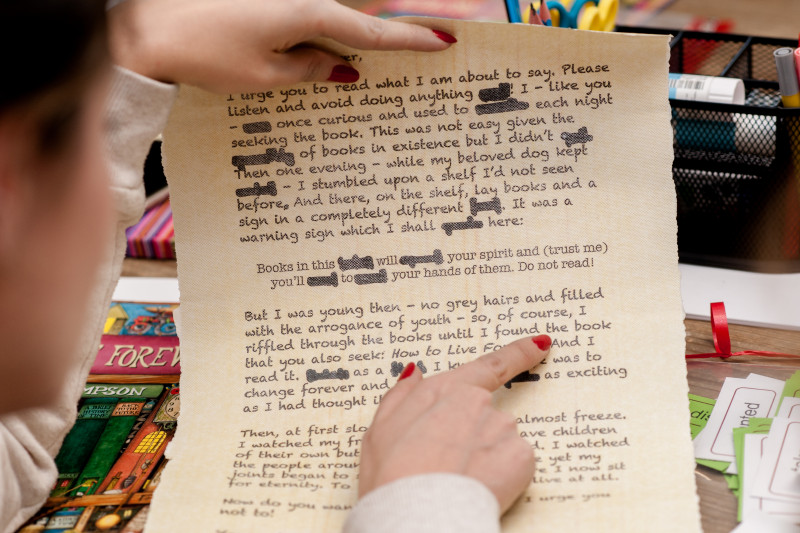 er,
I urge you to read what I am about to say. Please
listen and avoid doing anything ! I – like you
– once curious and used to each night
seeking the book. This was not easy given the
of books in existence but I didn't
Then one evening – while my beloved dog kept
– I stumbled upon a shelf I'd not seen
before. And there, on the shelf, lay books and a
sign in a completely different . It was a
warning sign which I shall here:
Books in this will your spirit and (trust me)
you'll to your hands of them. Do not read!
But I was young then – no grey hairs and filled
with the arrogance of youth – so, of course, I
riffled through the books until I found the book
that you also seek: How to Live Fo And I
read it. as a I k was to
change forever and as exciting
as I had thought i
Then, at first slo almost freeze.
I watched my fr ave children
of their own but d. I watched
the people aroun yet my
joints began to e I now sit
for eternity. To live at all.
Now do you wan I urge you
not to!
FOREV
MPSON
nted